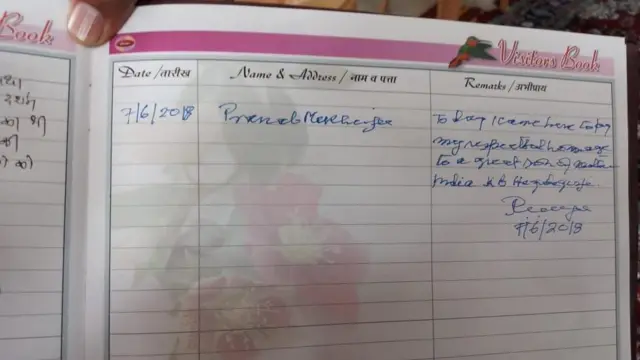 Book
Visitors Book
Date / तारीख
Name & Address / नाम व पत्ता
Remarks / अभीप्राय
7/6/2018
Pranab Mukherjee
Today I came here to pay
my respect and homage
to a great son of mother
India K B Hegdewar.
7/6/2018
को
की